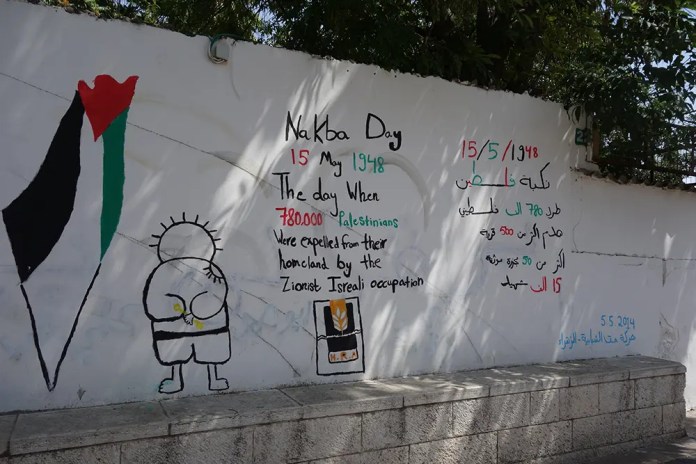 Nakba Day
15 May 1948
The day When
780.000 Palestinians
Were expelled from their
homeland by the
Zionist Isreali occupation
H.R.A
15/5/1948
نكبة فلسطين
طرد 780 الف فلسطيني
هدم اكثر من 500 قرية
اكثر من 50 مجزرة موثقة
15 الف شهيد
5.5.2014
حركة